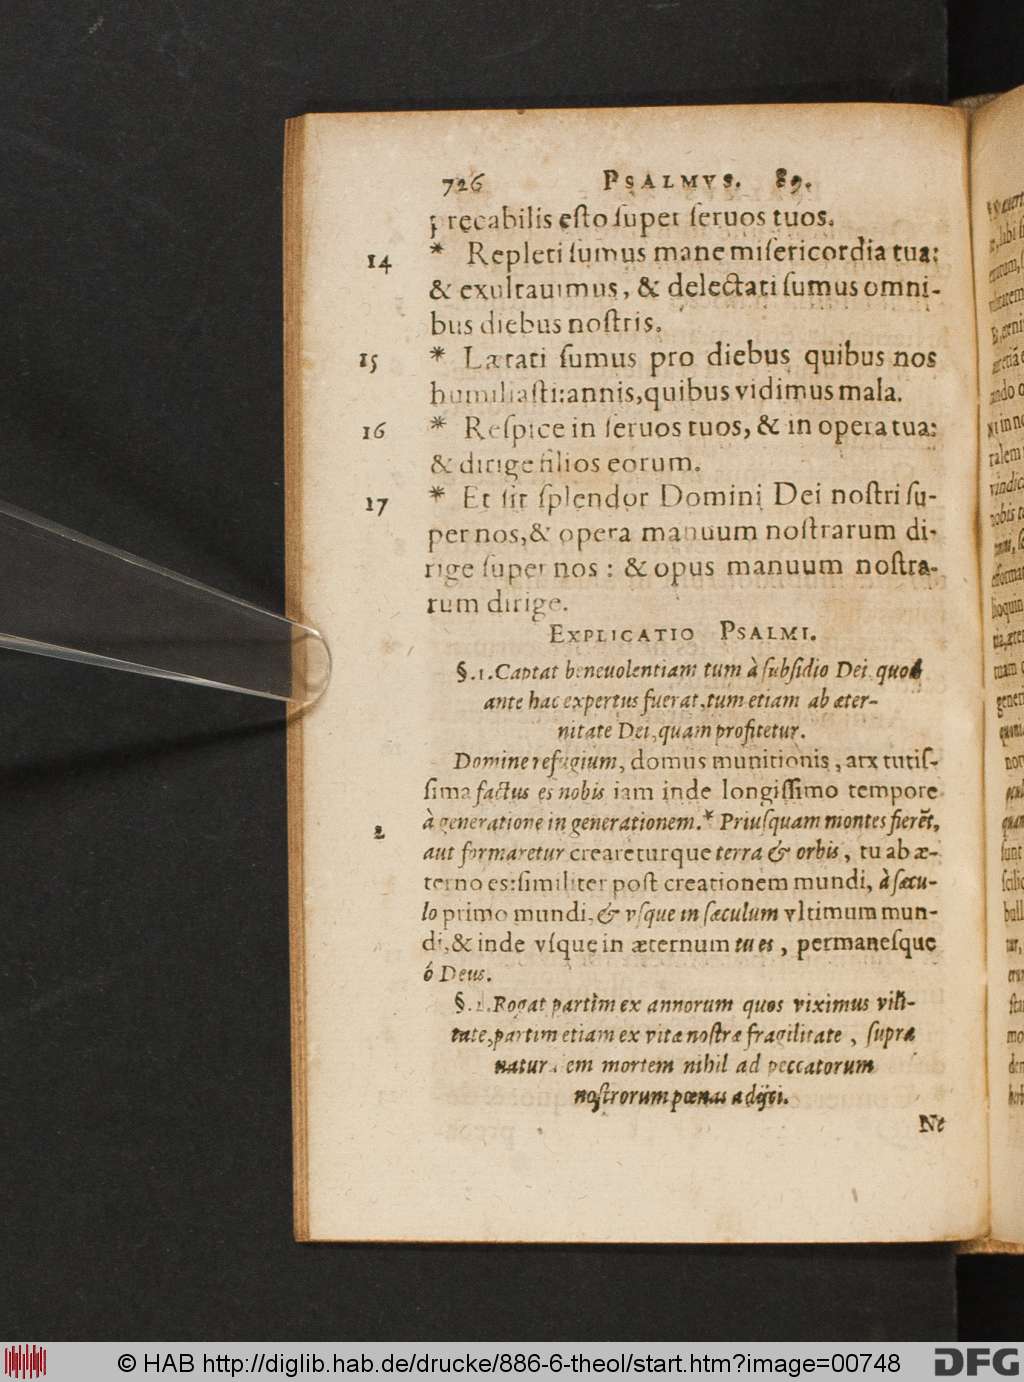 726 PSALMVS. 89.
precabilis esto super seruos tuos.
14 * Repleti sumus mane misericordia tua:
& exultauimus, & delectati sumus omni-
bus diebus nostris.
15 * Lætati sumus pro diebus quibus nos
humiliasti: annis, quibus vidimus mala.
16 * Respice in seruos tuos, & in opera tua:
& dirige filios eorum.
17 * Et sit splendor Domini Dei nostri su-
per nos, & opera manuum nostrarum di-
rige super nos : & opus manuum nostra-
rum dirige.
EXPLICATIO PSALMI.
§.1. Captat beneuolentiam tum à subsidio Dei, quod
ante hac expertus fuerat, tum etiam ab æter-
nitate Dei, quam profitetur.
Domine refugium, domus munitionis, arx tutis-
sima factus es nobis iam inde longissimo tempore
à generatione in generationem.* Priusquam montes fierẽt,
2 aut formaretur creareturque terra & orbis, tu ab æ-
terno es: similiter post creationem mundi, à sæcu-
lo primo mundi, & vsque in sæculum vltimum mun-
di, & inde vsque in æternum tu es, permanesque
ó Deus.
§.2. Rogat partim ex annorum quos viximus vili-
tate, partim etiam ex vitæ nostræ fragilitate, supra
naturalem mortem nihil ad peccatorum
nostrorum pœnas adijci.
Ne
© HAB http://diglib.hab.de/drucke/886-6-theol/start.htm?image=00748
DFG